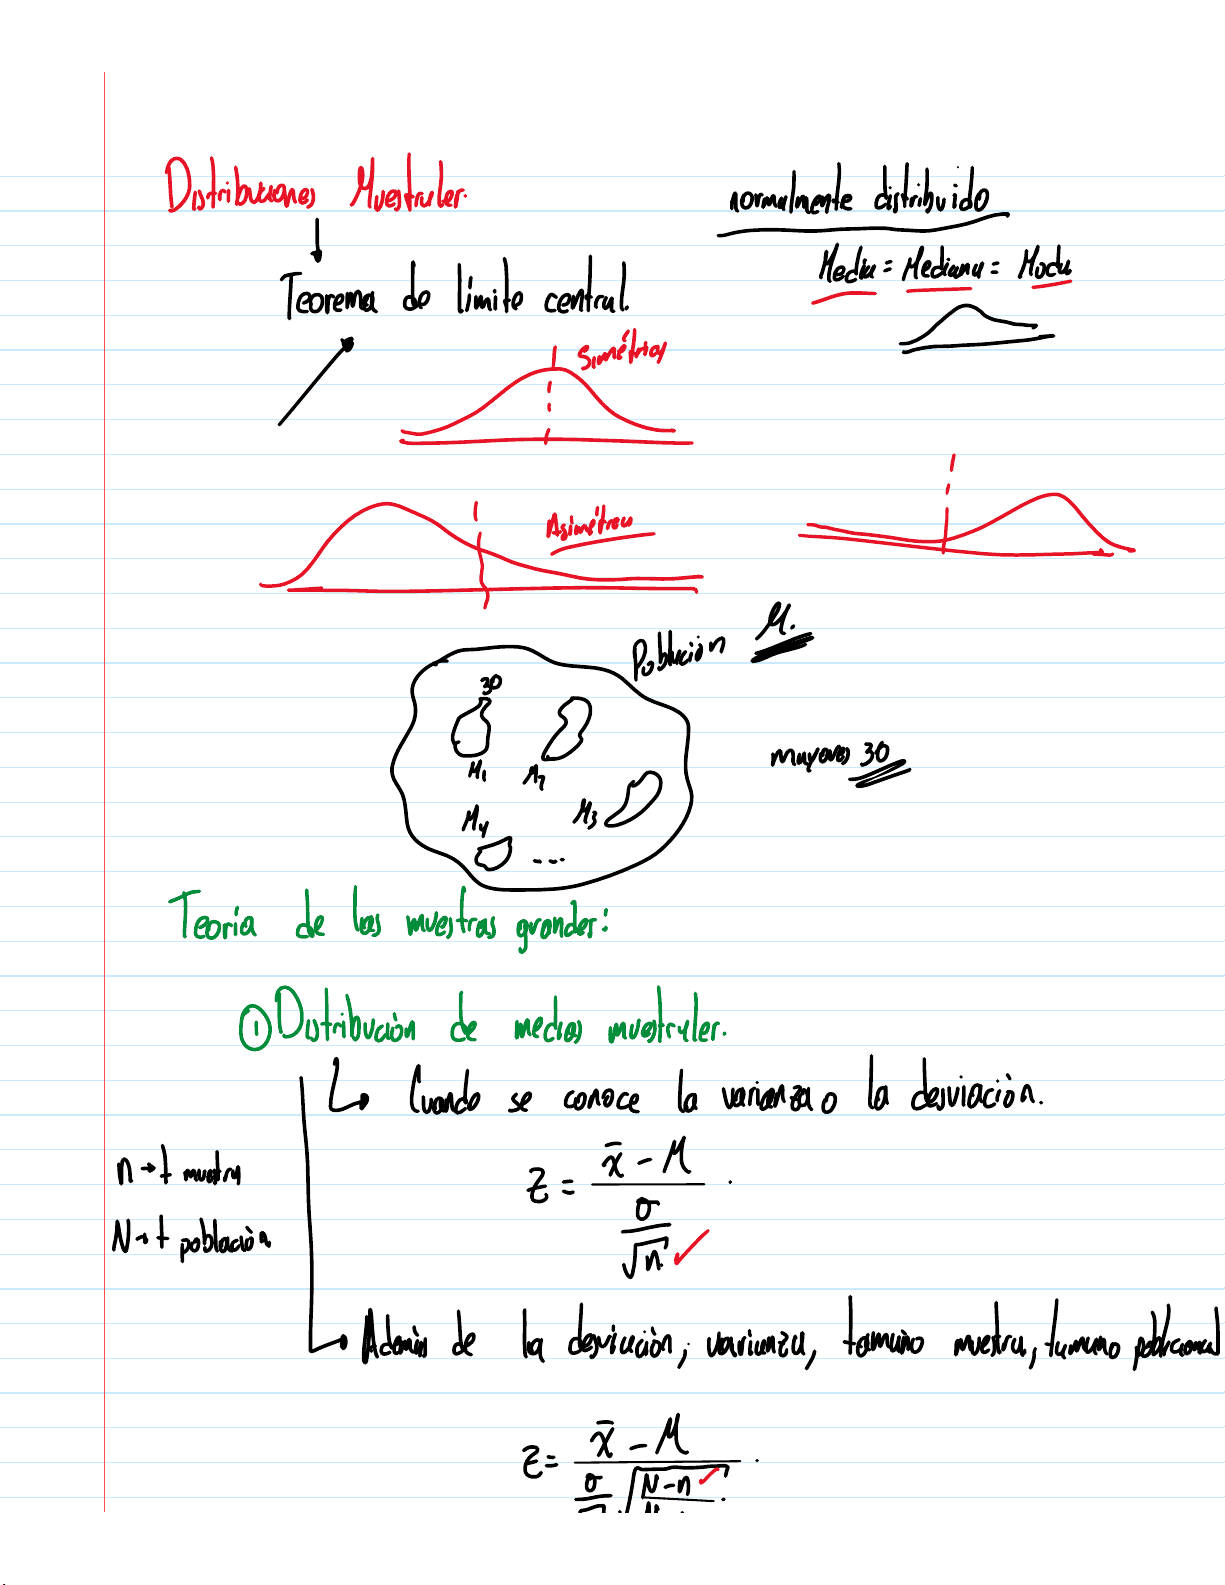 Distribuciones Muestrales.
normalmente distribuido
Media = Mediana = Moda
Teorema de límite central.
Simétrica
Asimétrica
Población M.
30
M1 M2
mayores 30
M3
M4
...
Teoría de las muestras grandes:
① Distribución de medias muestrales.
↳ Cuando se conoce la varianza o la desviación.
n → t muestra
N → t población
Z = (x̄ − μ) / (σ / √n) ✓
↳ Además de la desviación, varianza, tamaño muestra, tamaño poblacional
Z = x̄ − μ
σ √ N − n ✓